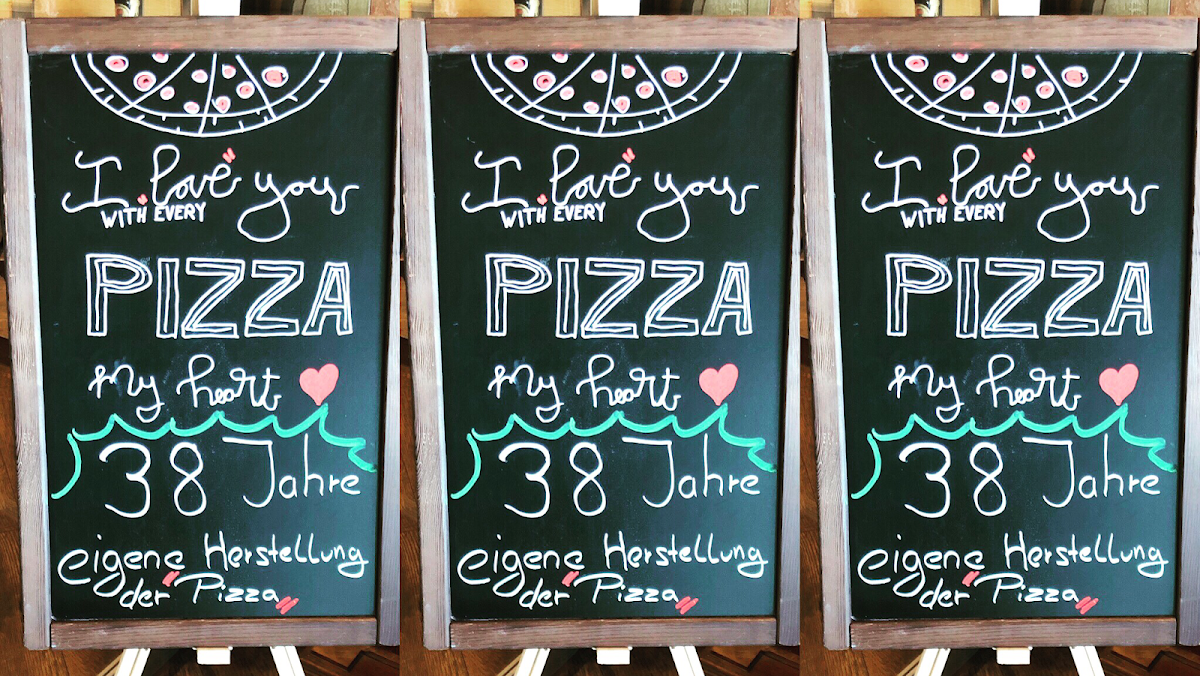 I love you
WITH EVERY
PIZZA
my heart
38 Jahre
eigene Herstellung
der Pizza
I love you
WITH EVERY
PIZZA
my heart
38 Jahre
eigene Herstellung
der Pizza
I love you
WITH EVERY
PIZZA
my heart
38 Jahre
eigene Herstellung
der Pizza